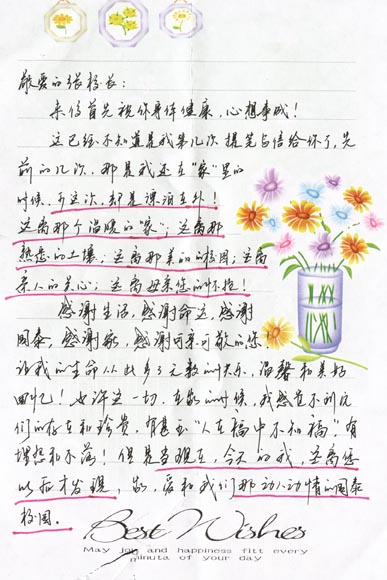 敬爱的张杨长:
来信首先祝你身体健康,心想事成!
这已经不知道是我第几次提笔与信给你了,先
前的几次,那是我还在"家"里的
时候,可这次,却是漂泊在外!
离离那个温暖的"家",离离那
熟悉的土壤;离离那美的校园;离离
亲人的关心;离离母亲您的怀抱!
感谢生活,感谢命运,感谢
国泰,感谢,感谢可亲可敬的您
让我的生命从此多了无数的快乐,温馨和美好
回忆!也许这一切,在的时候,我感觉不到它
们的存在和珍贵,有甚至"人在福中不知福",有
埋怨和不满!但是当现在,今天的我,离离您
以后才发现,,爱和我们那动人动情的国泰
校园。
Best Wishes
May joy and happiness fitt every
minuta of your day